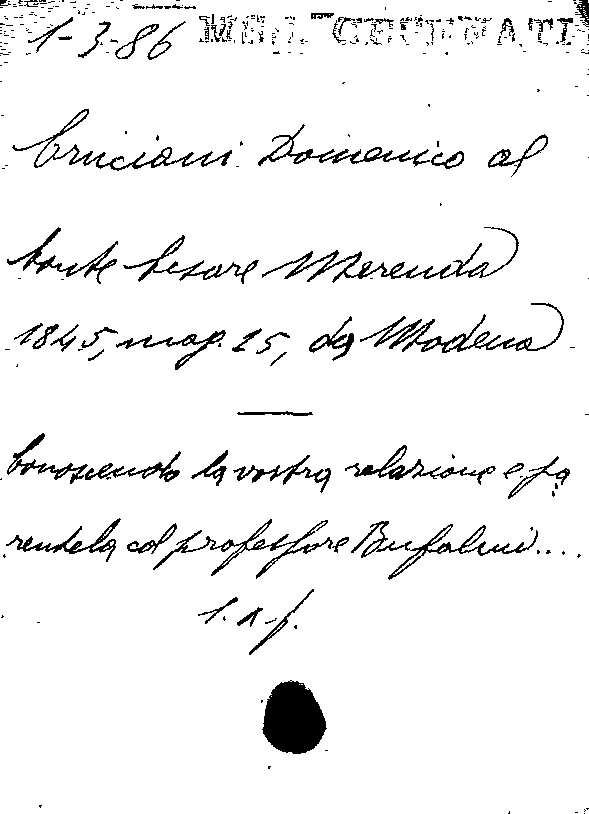 1-3-86 MSS. CESENATI
Cruciani Domenico al
Conte Cesare Merenda
1845, mag. 25, da Modena
Conoscendo la vostra relazione e pa
rentela col professore Bufalini....
1. a f.